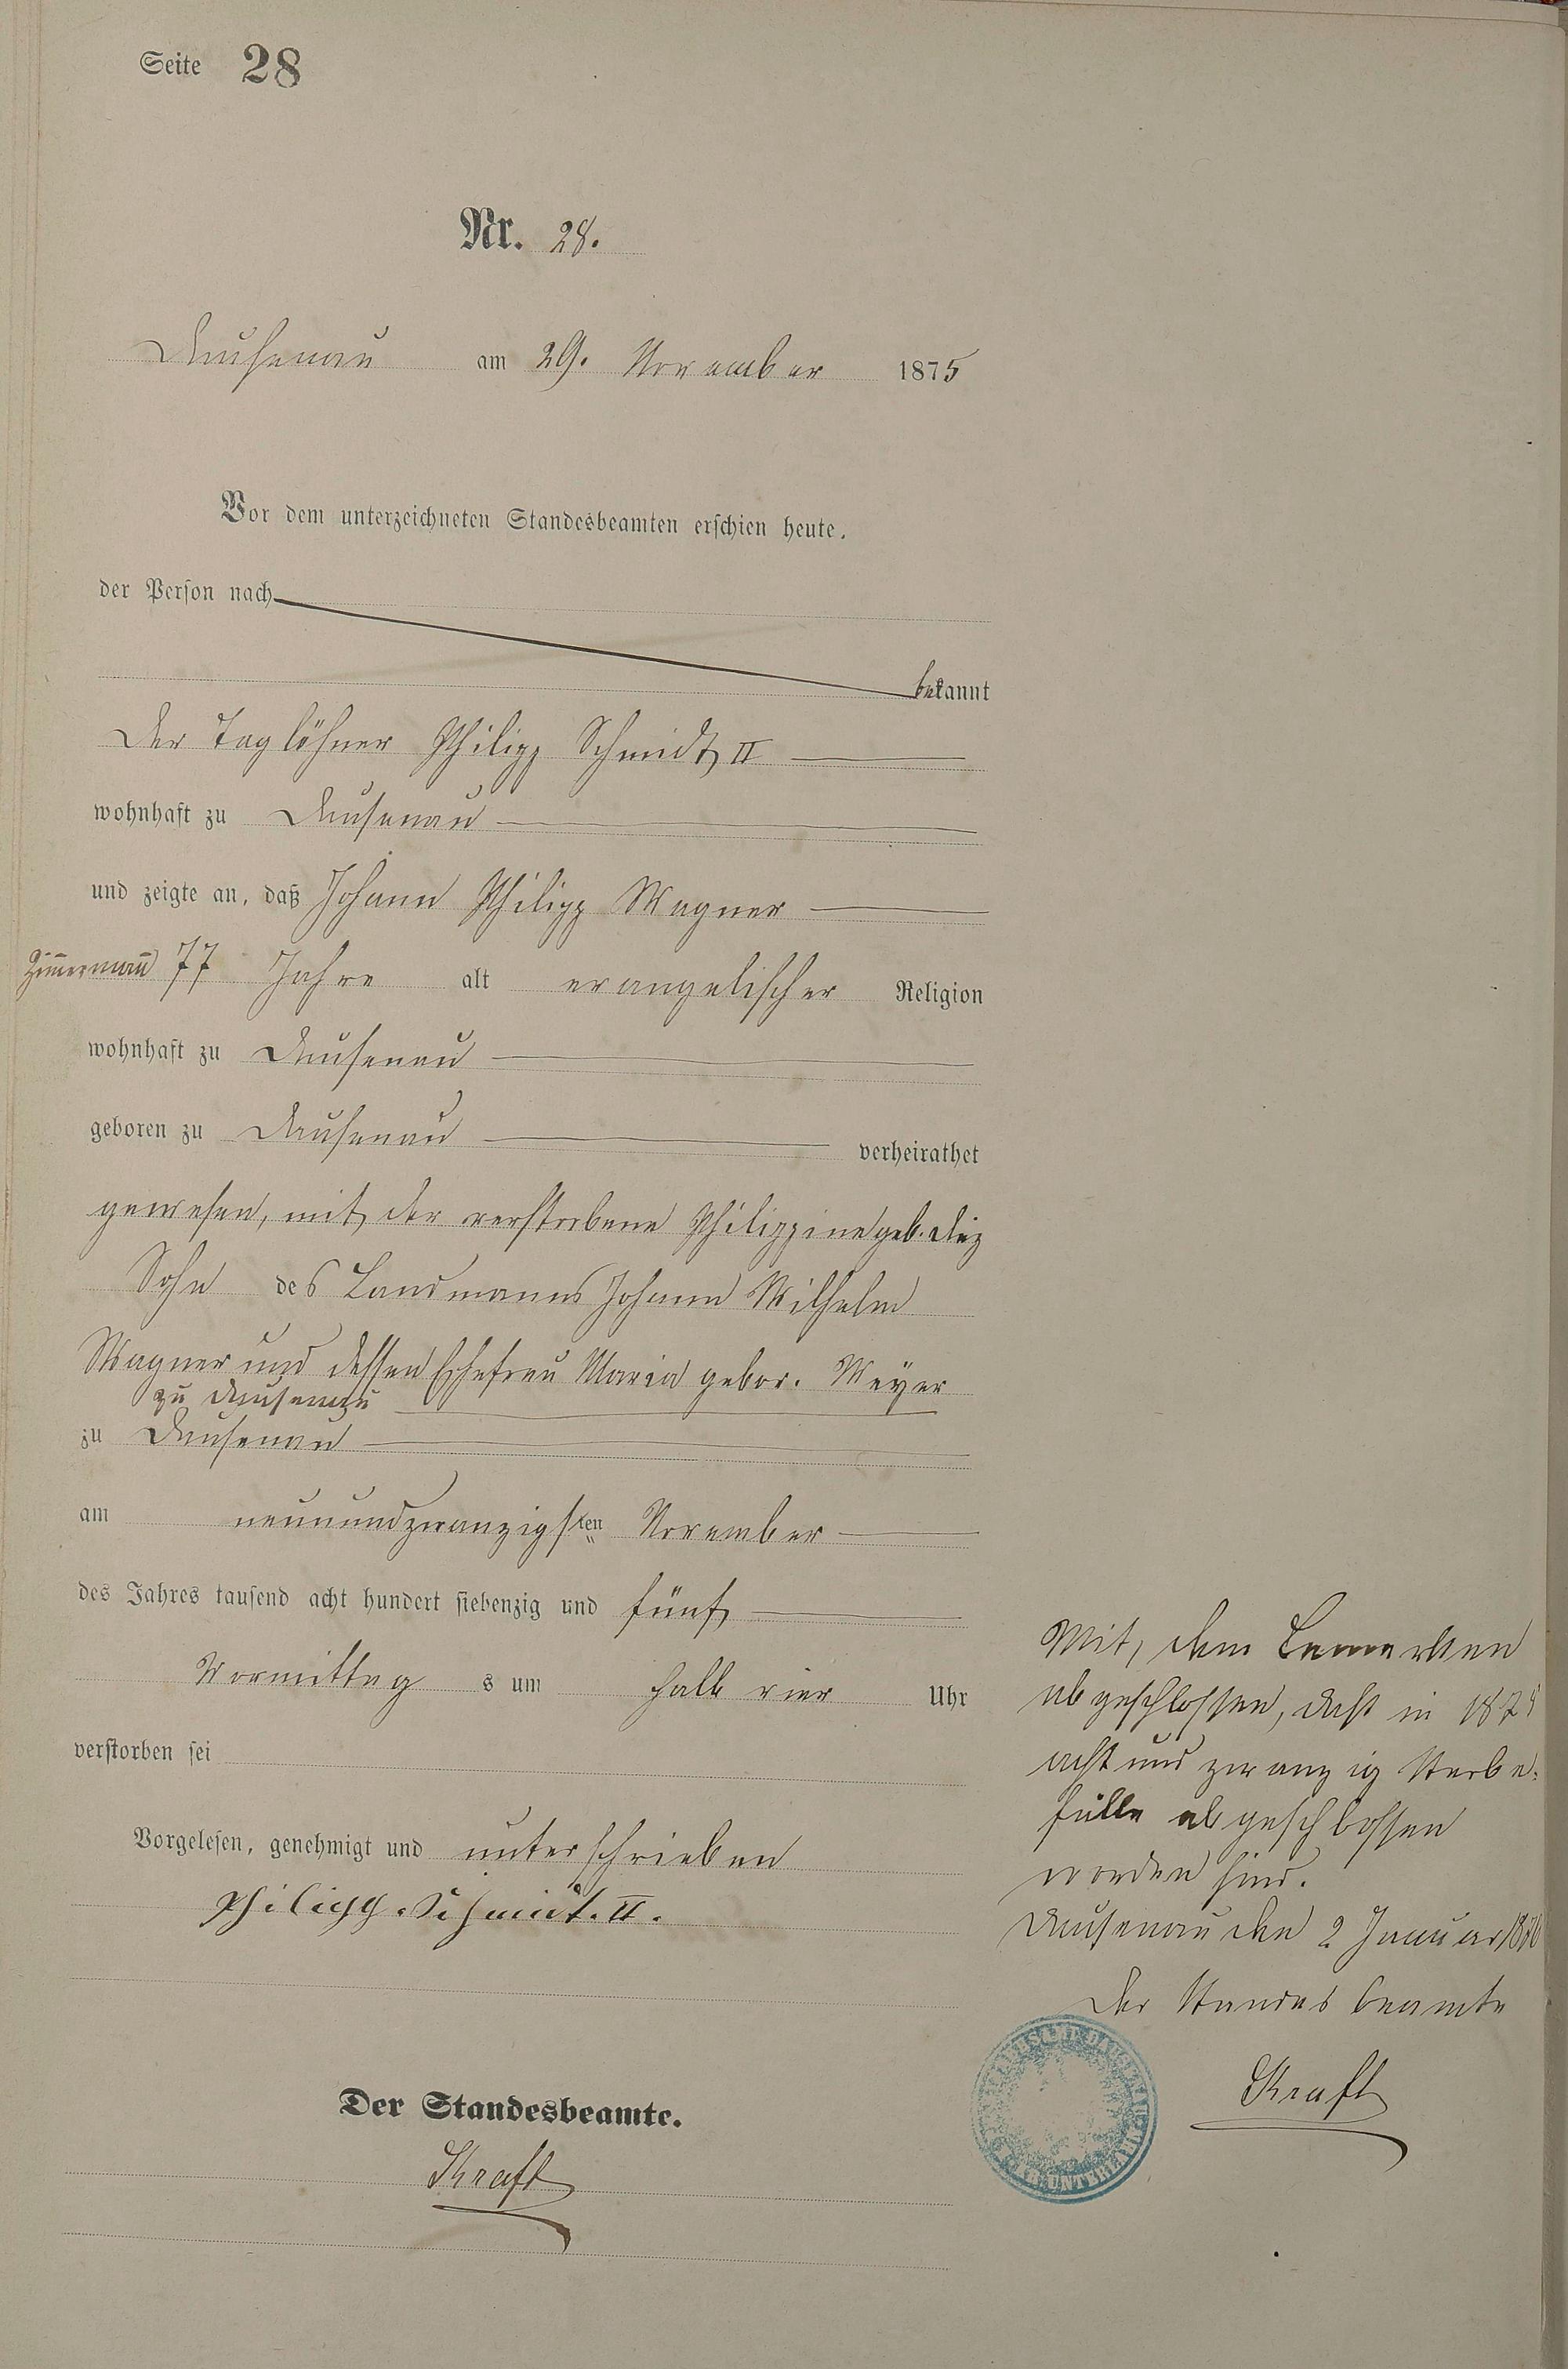 Seite 28
Nr. 28.
Dausenau am 29. November 1875
Vor dem unterzeichneten Standesbeamten erschien heute,
der Person nach
bekannt
Der Taglöhner Philipp Schmidt II
wohnhaft zu Dausenau
und zeigte an, daß Johann Philipp Wagner
Zim̄erman̄ 77 Jahre alt evangelischer Religion
wohnhaft zu Dausenau
geboren zu Dausenau verheirathet
gewesen, mit der verstorbene Philippine geb.
Sohn des Landmanns Johann Wilhelm
Wagner und dessen Ehefrau Maria gebor. Meyer
zu Dausenau
zu Dausenau
am neunundzwanzigsten November
des Jahres tausend acht hundert siebenzig und fünf
Vormittag s um halb vier Uhr
verstorben sei
Vorgelesen, genehmigt und unterschrieben
Philipp. Schmidt. II.
Der Standesbeamte.
Kraft
Mit, dem Bemerken
abgeschlossen, daß in 1875
acht und zwanzig Sterbe-
fälle abgeschlossen
worden sind.
Dausenau den 2 Januar 1876
Der Standesbeamte
Kraft
UNTERLAHN